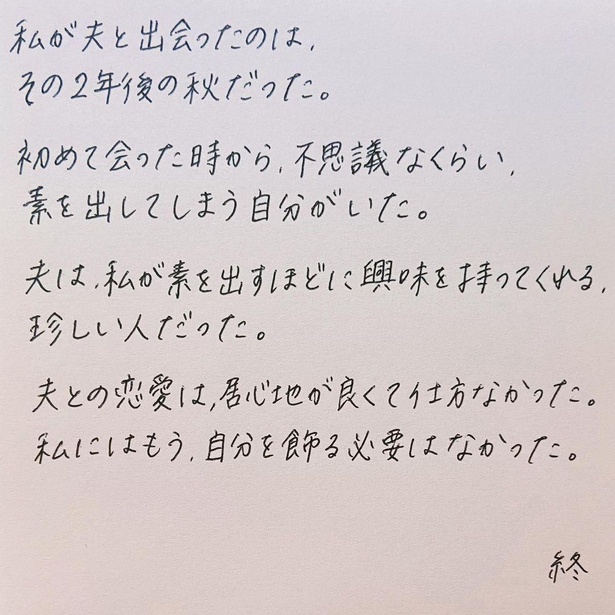 私が夫と出会ったのは,
その2年後の秋だった。
初めて会った時から,不思議なくらい,
素を出してしまう自分がいた。
夫は,私が素を出すほどに興味を持ってくれる,
珍しい人だった。
夫との恋愛は,居心地が良くて仕方なかった。
私にはもう,自分を飾る必要はなかった。
終